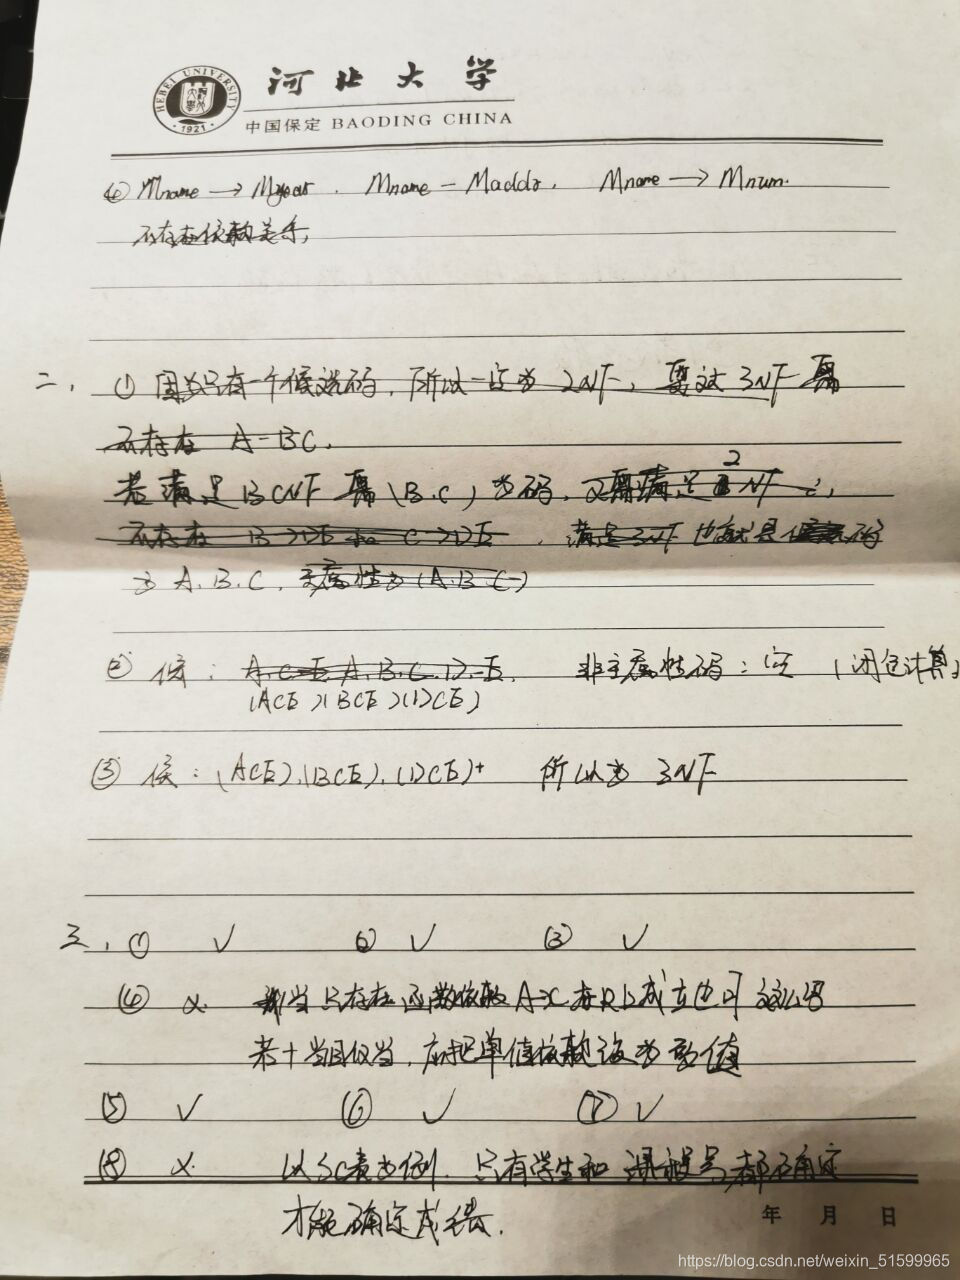 HEBEI UNIVERSITY
1921
河北大学
中国保定 BAODING CHINA
④ Mname → Myear . Mname — Maddr. Mname → Mnum.
不存在依赖关系,
二、 ① 因为只有一个候选码, 所以一定为 2NF, 要达 3NF 需
不存在 A-BC.
若满足BCNF 需 (B.C) 为码, 又需满足 2NF
不存在 B→DE C→DE , 满足3NF 也就是 码
为 A.B.C, 主属性为 (A.B.C)
② 候: A.C.E A.B.C.D.E, 非主属性码: 空 (闭包计算)
(ACE)(BCE)(DCE)
③ 候: (ACE).(BCE).(DCE)+ 所以为 3NF
三、 ① √ ② √ ③ √
④ ×. 当只存在函数依赖 A→C 在R上成立也可
若 + 当且仅当, 应把单值依赖改为多值
⑤ √ ⑥ √ ⑦ √
⑧ ×. 以SC表为例, 只有学生和课程号都确定
才能确定成绩.
年 月 日
https://blog.csdn.net/weixin_51599965